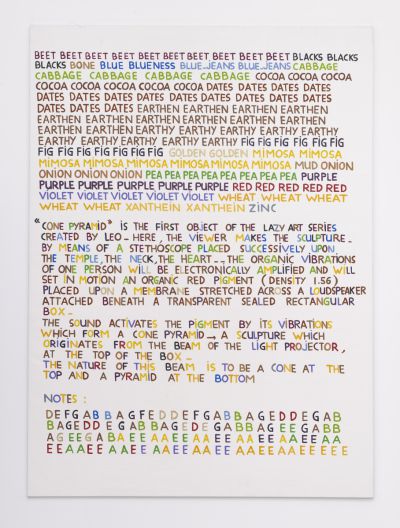 BEET BEET BEET BEET BEET BEET BEET BEET BEET BEET BLACKS BLACKS
BLACKS BONE BLUE BLUENESS BLUE_JEANS BLUE_JEANS CABBAGE
CABBAGE CABBAGE CABBAGE CABBAGE COCOA COCOA COCOA
COCOA COCOA COCOA COCOA COCOA COCOA DATES DATES DATES
DATES DATES DATES DATES DATES DATES DATES DATES DATES
DATES DATES DATES DATES EARTHEN EARTHEN EARTHEN
EARTHEN EARTHEN EARTHEN EARTHEN EARTHEN EARTHEN
EARTHEN EARTHEN EARTHEN EARTHY EARTHY EARTHY EARTHY
EARTHY EARTHY EARTHY EARTHY FIG FIG FIG FIG FIG FIG
FIG FIG FIG FIG FIG FIG GOLDEN GOLDEN MIMOSA MIMOSA
MIMOSA MIMOSA MIMOSA MIMOSA MIMOSA MIMOSA MUD ONION
ONION ONION ONION PEA PEA PEA PEA PEA PEA PEA PURPLE
PURPLE PURPLE PURPLE PURPLE PURPLE RED RED RED RED RED
VIOLET VIOLET VIOLET VIOLET VIOLET WHEAT WHEAT WHEAT
WHEAT WHEAT XANTHEIN XANTHEIN ZINC
"CONE PYRAMID" IS THE FIRST OBJECT OF THE LAZY ART SERIES
CREATED BY LEO_HERE, THE VIEWER MAKES THE SCULPTURE_
BY MEANS OF A STETHOSCOPE PLACED SUCCESSIVELY UPON
THE TEMPLE, THE NECK, THE HEART__THE ORGANIC VIBRATIONS
OF ONE PERSON WILL BE ELECTRONICALLY AMPLIFIED AND WILL
SET IN MOTION AN ORGANIC RED PIGMENT (DENSITY 1.56)
PLACED UPON A MEMBRANE STRETCHED ACROSS A LOUDSPEAKER
ATTACHED BENEATH A TRANSPARENT SEALED RECTANGULAR
BOX_
THE SOUND ACTIVATES THE PIGMENT BY ITS VIBRATIONS
WHICH FORM A CONE PYRAMID_, A SCULPTURE WHICH
ORIGINATES FROM THE BEAM OF THE LIGHT PROJECTOR,
AT THE TOP OF THE BOX_
THE NATURE OF THIS BEAM IS TO BE A CONE AT THE
TOP AND A PYRAMID AT THE BOTTOM
NOTES :
DEFGABBAGFEDDEFGABBAGEDDEGAB
BAGEDDEGABBAGEDEGABBAGEGABBA
AGEEGABAEEAAEEAAEEAAEEAAEEAA
EEAAEEAAEEAAEEAAEEAAEEAAEEEEEE